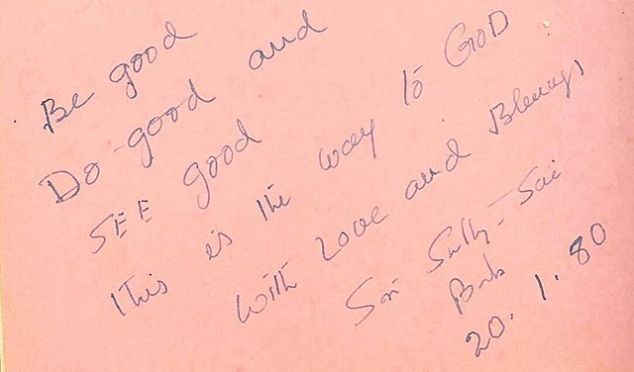 Be good
Do good and
SEE good
This is the way to GOD
with Love and Blessings
Sri Sathya Sai
Baba
20.1.80